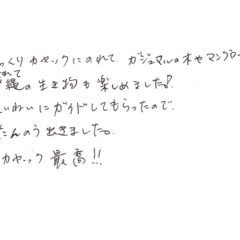 っくりカヤックにのれて、ガジュマルの木やマングロー
縄の生き物も楽しめました♪
いねいにガイドしてもらったので、
たんのう出きました。
カヤック 最高!!